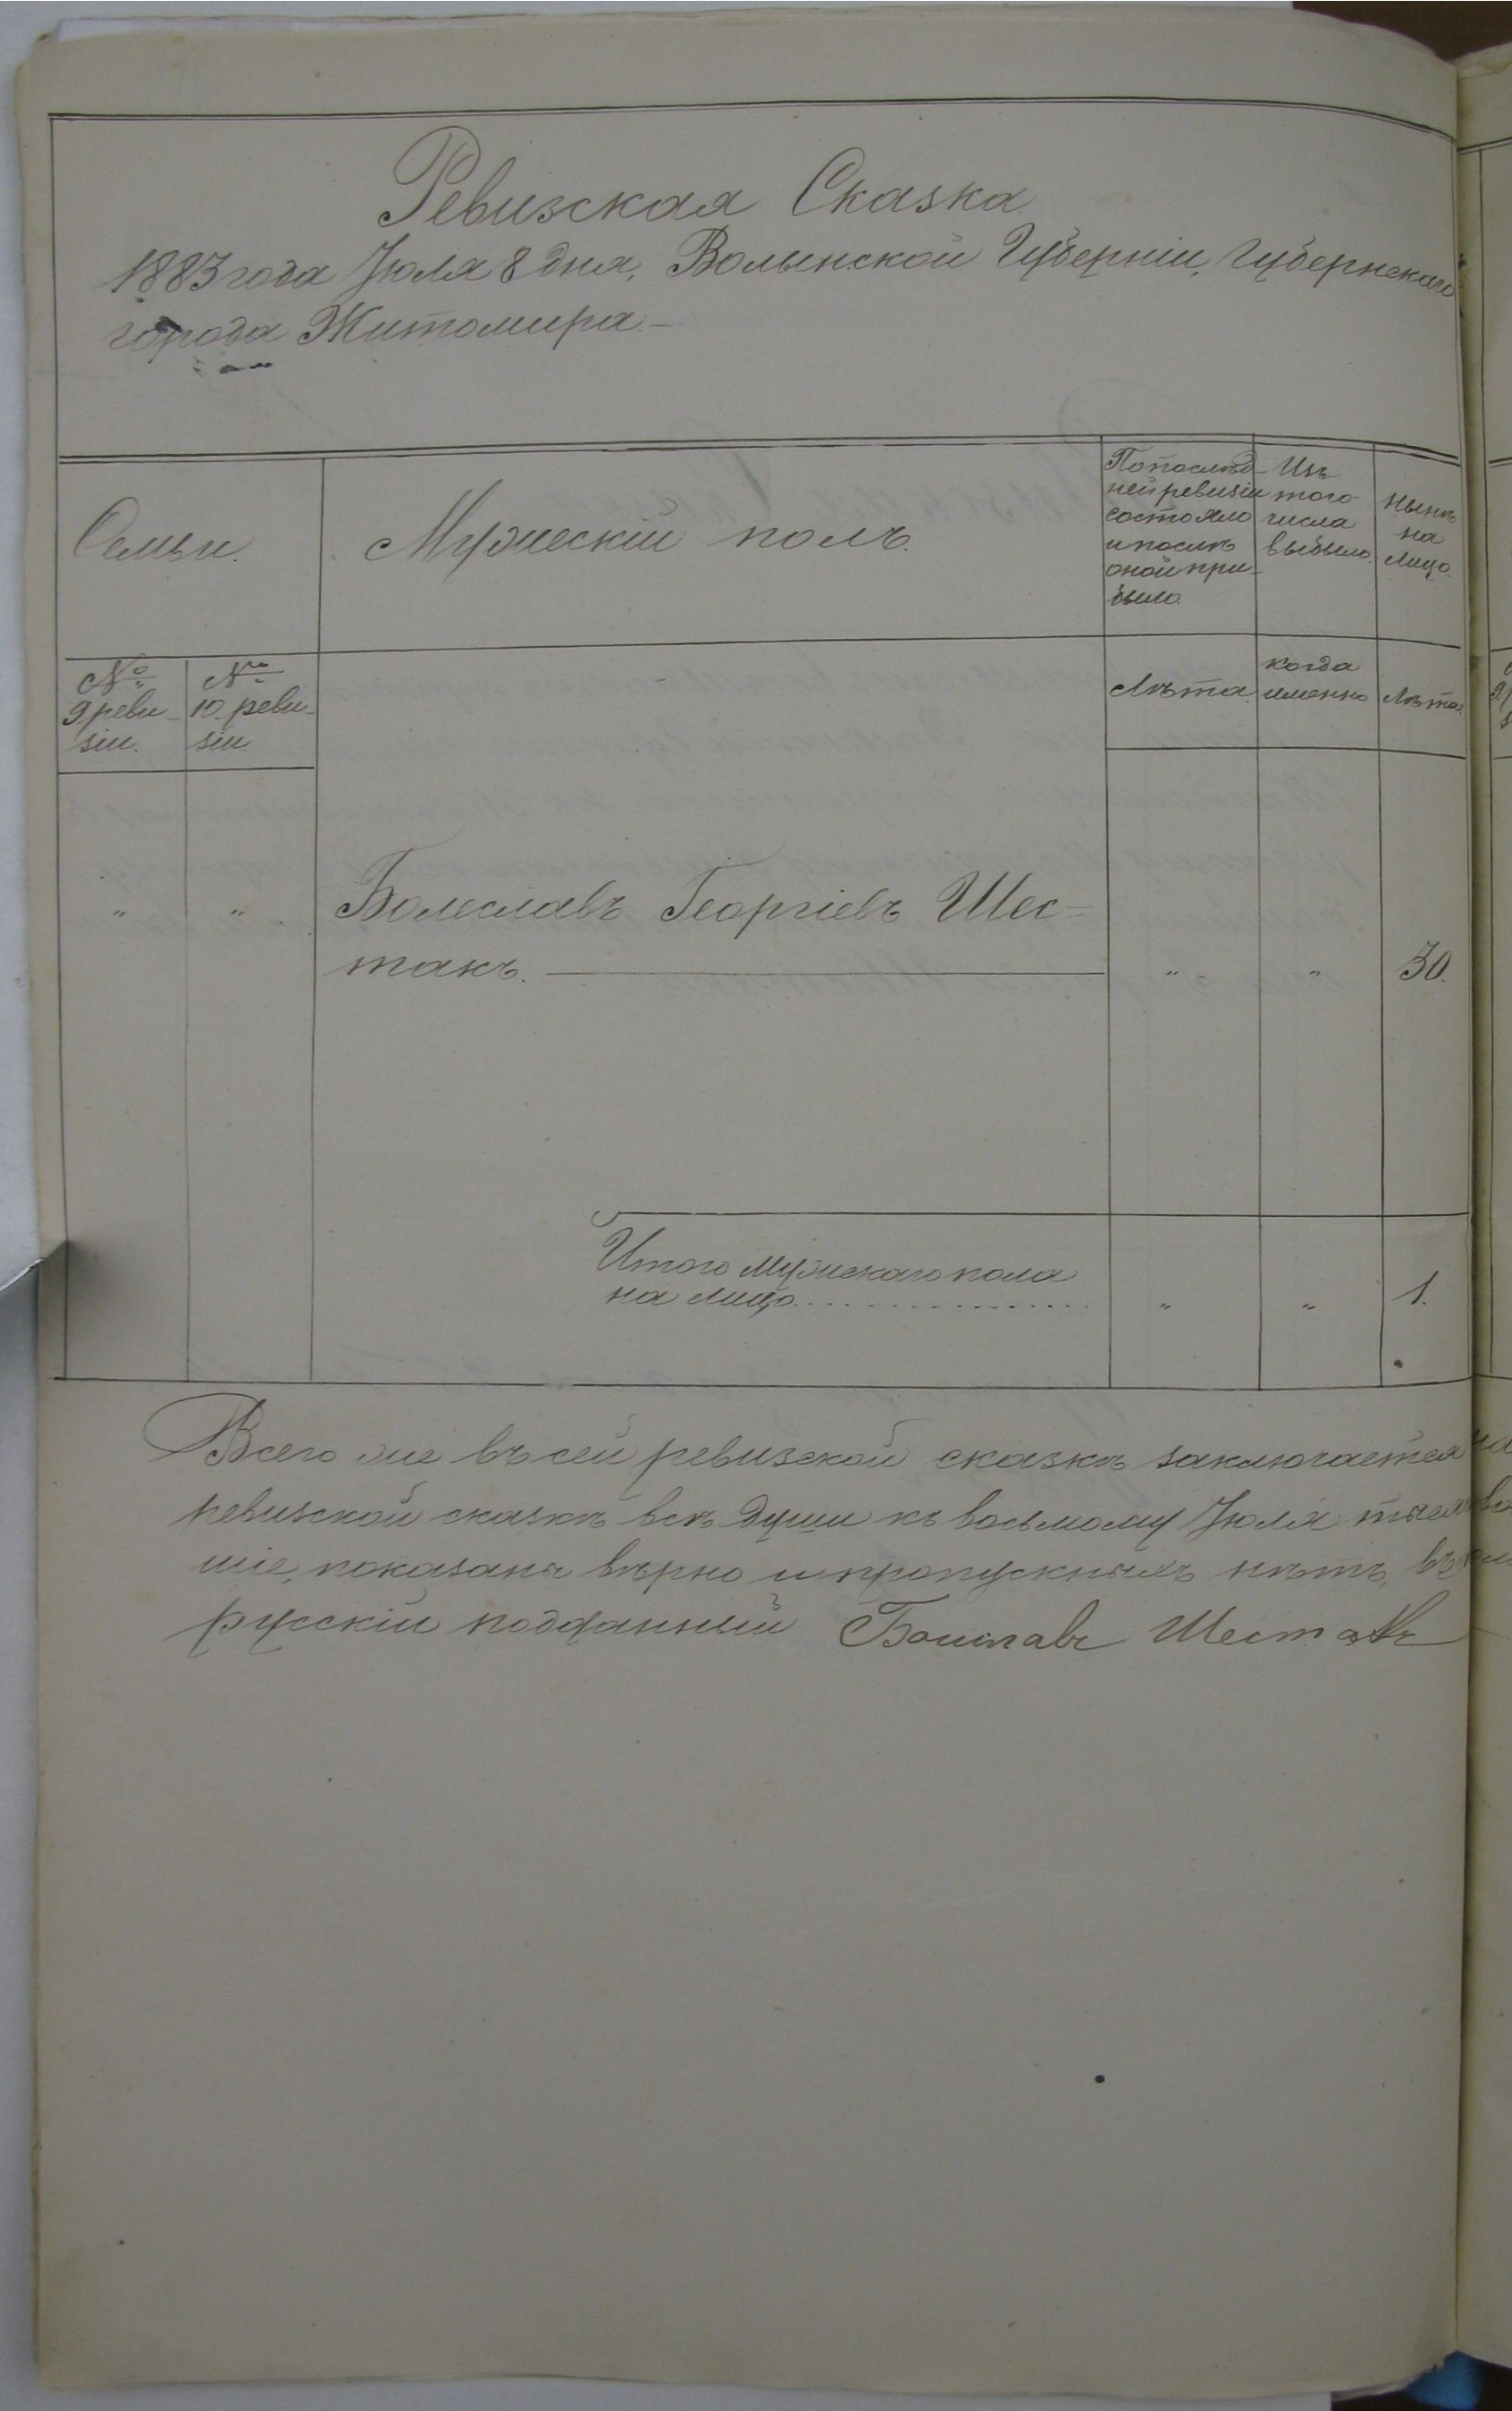 Ревизская Сказка
1883 года Іюля 8 дня, Волынской Губерніи, Губернскаго
города Житомира.-
Семьи.
Мужескій полъ.
По послѣд-
ней ревизіи
состояло
и послѣ
оной при-
было.
Изъ
того
числа
выбыло.
Нынѣ
на
лицо.
№
9 реви-
зіи.
№
10. реви-
зіи
Лѣта.
когда
именно
Лѣта.
" "
Болеславъ Георгіевъ Шес-
такъ. " " 30.
Итого мужескаго пола
на лицо. " " 1.
Всего же въ сей ревизской сказкѣ заключается
ревизской сказкѣ всѣ души къ восьмому Іюля тыся
шіе, показаны вѣрно и прописныхъ нѣтъ, въ
русскій подданный Болеславъ Шестакъ